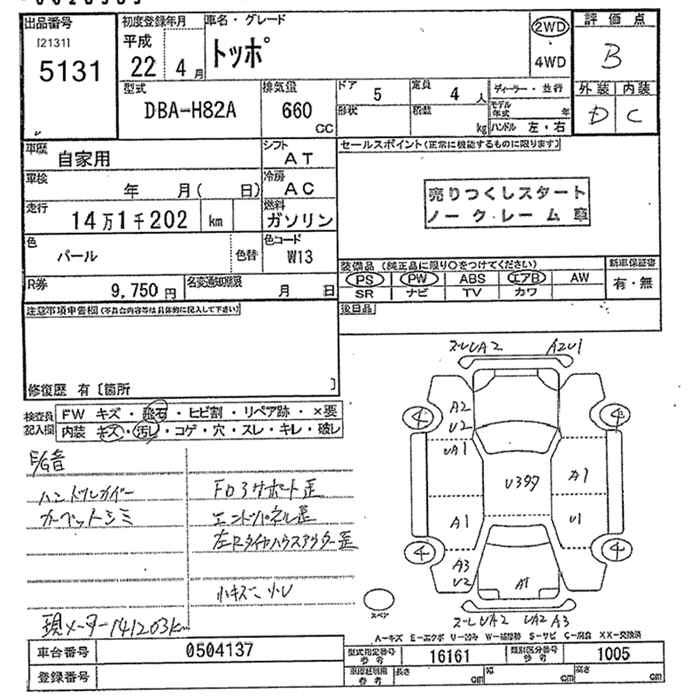 出品番号
[2131]
5131
初度登録年月
平成
22年 4月
車名・グレード
トッポ
2WD
4WD
評価点
B
外装 内装
D C
型式
DBA-H82A
排気量
660
CC
ドア 5
形状
定員 4人
積数 kg
ディーラー・並行
モデル年式 年
ハンドル 左・右
車歴 自家用
シフト AT
セールスポイント(正常に機能するものに限ります)
車検 年 月( 日)
冷房 AC
売りつくしスタート
ノークレーム車
走行 14万1千202 km
燃料 ガソリン
色 パール 色替
色コード W13
装備品(純正品に限り○をつけてください)
新車保証書
PS PW ABS エアB AW
有・無
SR ナビ TV カワ
R券 9,750円
名変通知期限 月 日
後日品
注意事項申告欄(写真台内容等は具体的に記入して下さい)
修復歴 有〔箇所 〕
検査員記入欄
FW キズ・飛石・ヒビ割・リペア跡・×要
内装 キズ・汚レ・コゲ・穴・スレ・キレ・破レ
E/G音
ハンドルカバー
カーペットシミ
FD3サポート歪
エンドパネル歪
左Rタイヤハウスアウター歪
小キズ 小U
現メーター141203km
ズーレUA2 A2U1
A2
U2
UA1
4 4
U3977
A1
A1 U1
4 4
A3
U2
A1
ズーレUA2 UA2 A3
スペア
A-キズ E-エクボ U-凹み W-補修跡 S-サビ C-腐食 XX-交換済
車台番号 0504137
型式指定番号 参考 16161
類別区分番号 参考 1005
登録番号
長さ cm
幅 cm
高さ cm